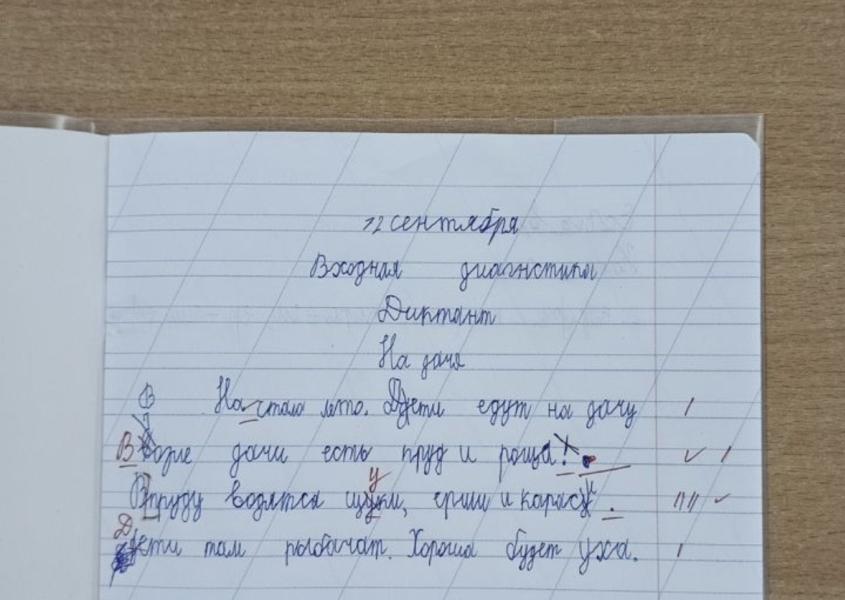 12 сентября
Входная диагностика
Диктант
На дачя
На стало лето. Дети едут на дачу
Возле дачи есть пруд и роща.
В пруду водятся щуки, ерши и караси.
Дети там рыбачат. Хороша будет уха.